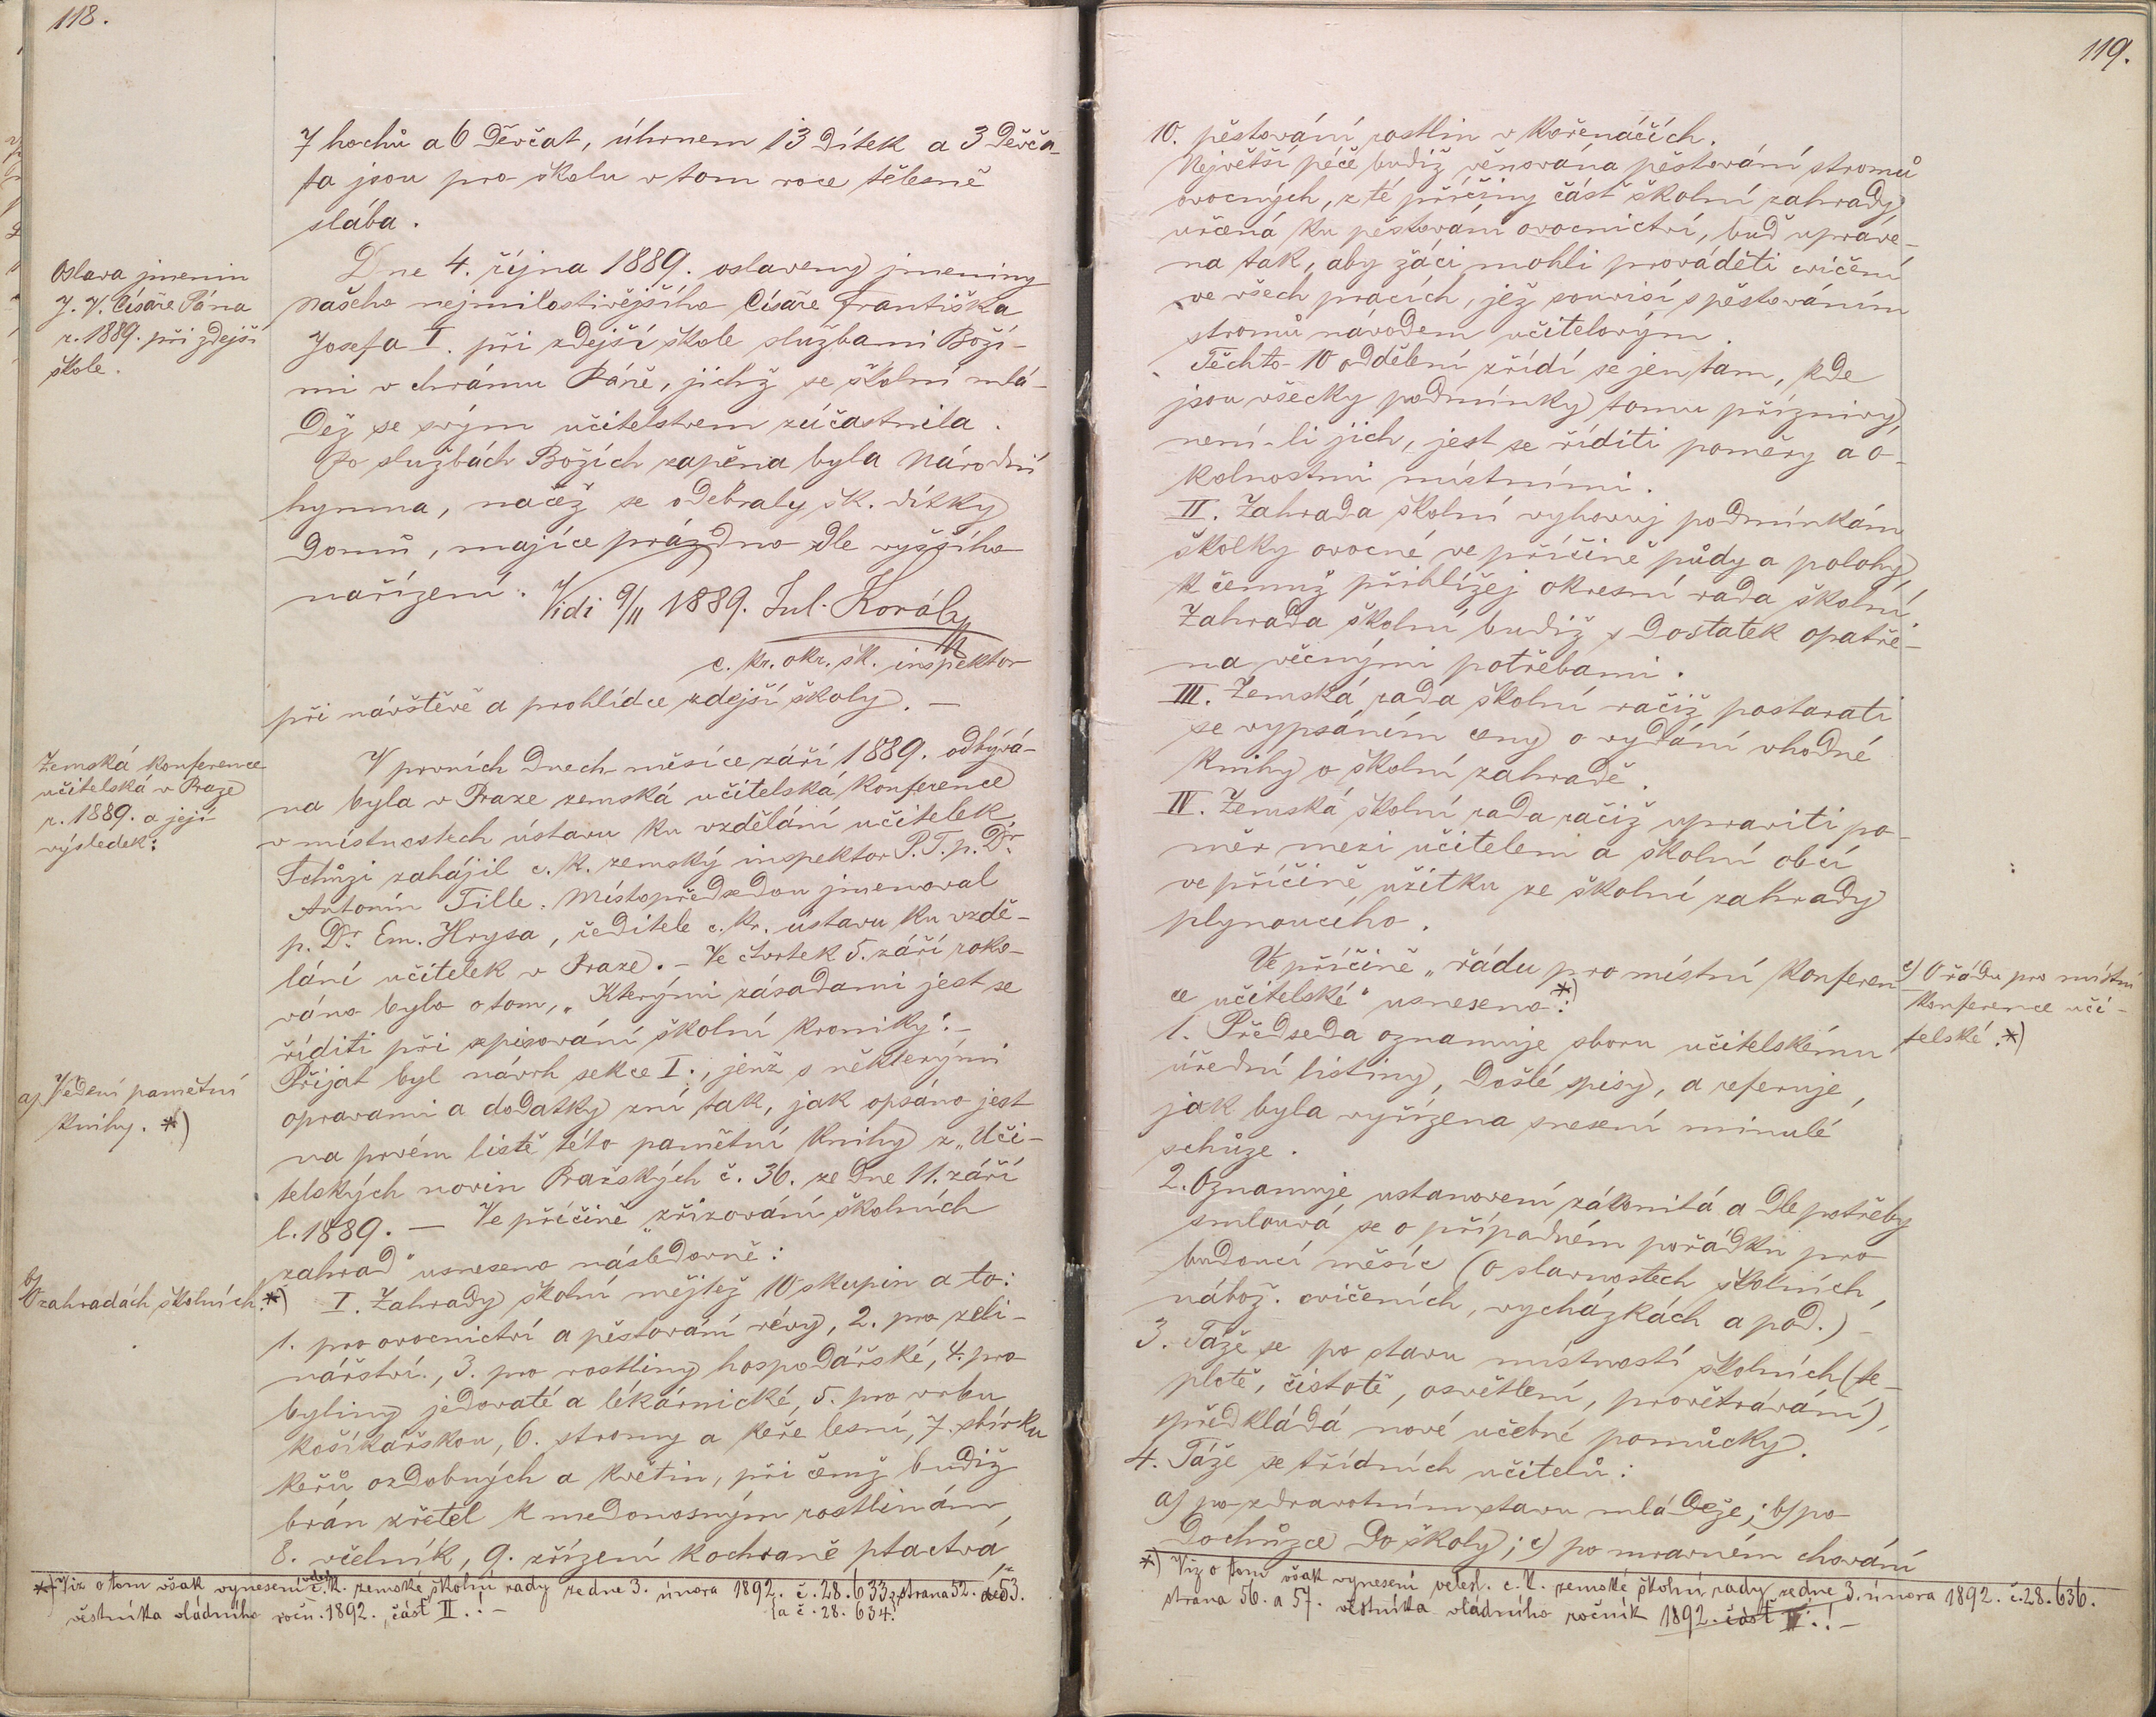 118.
7 hochů a 6 děvčat, úhrnem 13 dítek a 3 děvča-
ta jsou pro školu v tom roce tělesně
slába.
Oslava jmenin
J. V. Císaře Pána
r. 1889. při zdejší
škole.
Dne 4. října 1889. oslaveny jmeniny
našeho nejmilostivějšího Císaře Františka
Josefa I. při zdejší škole službami Boží-
mi v chrámu Páně, jichž se školní mlá-
dež se svým učitelstvem zúčastnila.
Po službách Božích zapěna byla národní
hymna, načež se odebraly šk. dítky
domů, majíce prázdno dle vyššího
nařízení.
Vidi 9/11 1889. Jul. Kovály
c. kr. okr. šk. inspektor
při návštěvě a prohlídce zdejší školy. —
Zemská konference
učitelská v Praze
r. 1889. a její
výsledek:
V prvních dnech měsíce září 1889. odbývá-
na byla v Praze zemská učitelská konference
v místnostech ústavu ku vzdělání učitelek.
Schůzi zahájil c. k. zemský inspektor P. T. p. Dr.
Antonín Tille. Místopředsedou jmenoval
p. Dr. Em. Hrysa, ředitele c. kr. ústavu ku vzdě-
lání učitelek v Praze. – Ve čtvrtek 5. září roko-
váno bylo o tom, „Kterými zásadami jest se
říditi při sepisování školní kroniky“. –
Přijat byl návrh sekce I., jenž s některými
opravami a dodatky zní tak, jak opsáno jest
na prvém listě této pamětní knihy z „Uči-
telských novin Pražských č. 36. ze dne 11. září
l. 1889. — Ve příčině „zřizování školních
zahrad“ usneseno následovně:
a) Vedení pamětní
knihy. *)
b) O zahradách školních. *)
I. Zahrady školní mějtež 10 skupin a to:
1. pro ovocnictví a pěstování révy, 2. pro zeli-
nářství., 3. pro rostliny hospodářské, 4. pro
byliny jedovaté a lékárnické, 5. pro vrbu
košíkářskou, 6. stromy a keře lesní, 7. sbírku
keřů ozdobných a květin, při čemž budiž
brán zřetel k medonosným rostlinám,
8. včelník, 9. zřízení k ochraně ptactva,
*) Viz o tom však vynesení c. k. zemské školní rady ze dne 3. února 1892. č. 28.633, strana 52. 53.
a č. 28.634.
věstníka vládního ročn. 1892., část II.! –
119.
10. pěstování rostlin v kořenáčích.
Největší péče budiž věnována pěstování stromů
ovocných, z té příčiny část školní zahrady
určená ku pěstování ovocnictví, buď uprave-
na tak, aby žáci mohli prováděti cvičení
ve všech pracích, jež souvisí s pěstováním
stromů návodem učitelovým.
Těchto 10 oddělení zřídí se jen tam, kde
jsou všecky podmínky tomu příznivy,
není-li jich, jest se říditi poměry a o-
kolnostmi místními.
II. Zahrada školní vyhovuj podmínkám
školky ovocné ve příčině půdy a polohy,
k čemuž přihlížej okresní rada školní.
Zahrada školní budiž s dostatek opatře-
na věcnými potřebami.
III. Zemská rada školní račiž postarati
se vypsáním ceny o vydání vhodné
knihy o školní zahradě.
IV. Zemská školní rada račiž upraviti po-
měr mezi učitelem a školní obcí
ve příčině užitku ze školní zahrady
plynoucího.
Ve příčině „řádu pro místní konferen-
ce učitelské“ usneseno: *)
c) O řádu pro místní
konference uči-
telské. *)
1. Předseda oznamuje sboru učitelskému
úřední listiny, došlé spisy, a referuje,
jak byla vyřízena snesení minulé
schůze.
2. Oznamuje ustanovení zákonitá a dle potřeby
smlouvá se o případném pořádku pro
budoucí měsíc (o slavnostech školních,
nábož. cvičeních, vycházkách a pod.) –
3. Táže se po stavu místností školních (te-
plotě, čistotě, osvětlení, provětrávání),
předkládá nové učebné pomůcky.
4. Táže se třídních učitelů:
a) po zdravotním stavu mládeže; b) po
dochůzce do školy; c) po mravném chování
*) Viz o tom však vynesení veleh. c. k. zemské školní rady ze dne 3. února 1892. č. 28.636.
strana 56. a 57. věstníka vládního ročník 1892. část II.! –